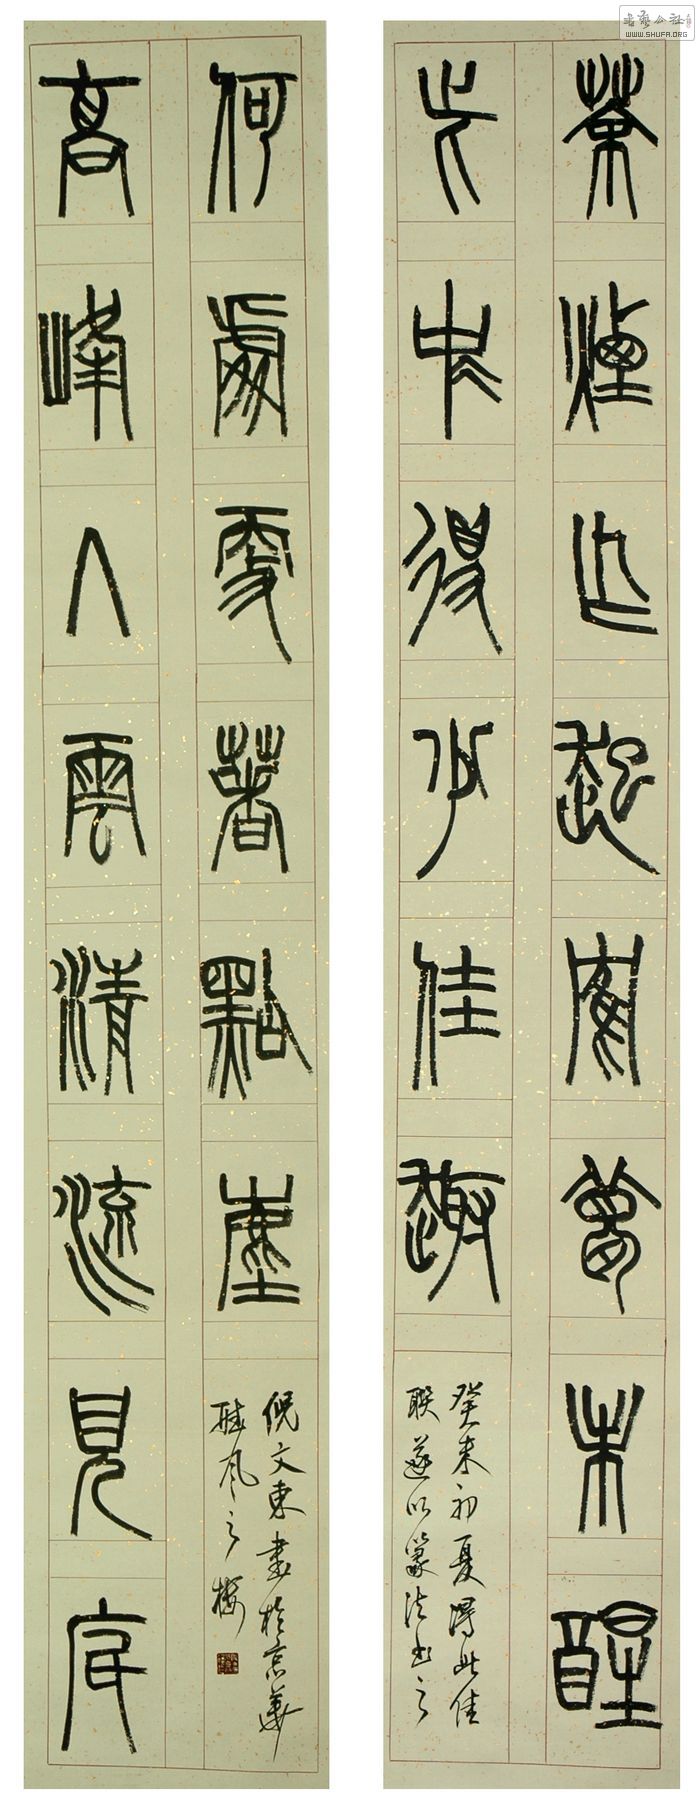 書藝公社
WWW.SHUFA.ORG
茶煙乍起鶴夢未醒
此中得少佳趣
癸未初夏得此佳
聯遂以篆法書之
高峰入雲清流見底
何處更著點塵
倪文東書於京華
聽風之樓